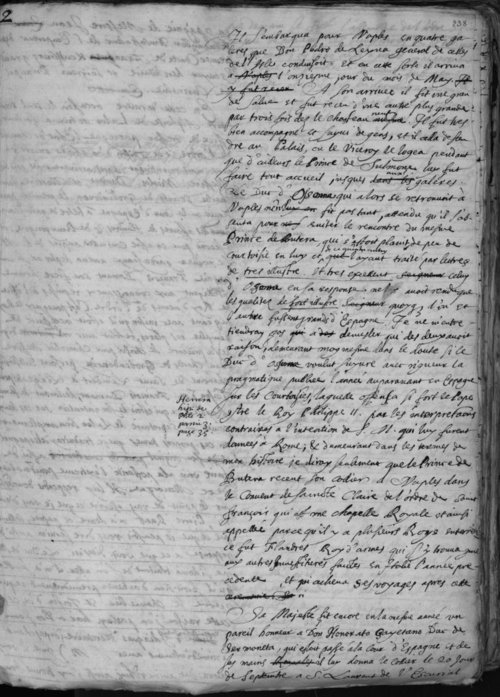 2
238
s'embarqua pour Naples en quatre ga-
leres que Don Pedro de Leyva general de celles
de Sicile conduisoit et en cette sorte il arriva
a Naples l'onziesme jour du mois de May
A son arrivee il fit une gran
de salve et fut receu d'une autre plus grande
par trois fois des le chasteau neuf Il fut tres
bien accompagné et suyvi de gens, et il alla descen
dre au Palais, ou le Viceroy le logea pendant
que d'ailleurs le Prince de Sulmone luy fut
faire tout accueil jusques aux galeres
Le Duc d'Ossone qui alors se retrouvoit à
Naples n'en fit pas tant, attendu qu'il s'ab-
senta pour eviter le rencontre du mesme
Prince de Butera qui s'estoit plaint de peu de
courtoisie en luy et ce que l'ayant traité par lettres
de tres illustre et tres excellent seigneur celuy
d'Ossone en sa response ne luy avoit rendu que
les qualites de fort illustre Seigneur quoy que l'un et
l'autre fussent grands d'Espagne. Je ne m'entre-
tiendray pas a demesler qui des deux avoit
raison, demeurant moy mesme dans le doute si le
Duc d'Ossone voulut suyvre avec rigueur la
pragmatique publiee l'année auparavant en Espagne
sur les Courtoisies, laquelle offensa si fort le Pape
et le Roy Philippe II. par les interpretations
contraires a l'intention de S. M. qui luy furent
donnees a Rome, & demeurant dans les termes de
mon histoire je diray seulement que le Prince de
Butera receut son Collier à Naples dans
le Couvent de Saincte Claire de l'ordre de Saint
François qui est une chapelle Royale et ainsi
appellee parce qu'il y a plusieurs Roys enterrés
ce fut Flandres Roy d'armes qui s'y trouva que
aux autres faites en Italie l'année pre-
cedente, et qui acheva ses voyages apres cette
ceremonie
Herrera
hist. de
Phil. 2
part. 3.
page 35
Sa Majesté fit encore en la mesme année un
pareil honneur a Don Honorato Gayetano Duc de
Sermoneta, qui estoit passé a la Cour d'Espagne et de
ses mains il luy donna le Collier le 20 Jour
de Septembre a S. Laurent de l'Escurial